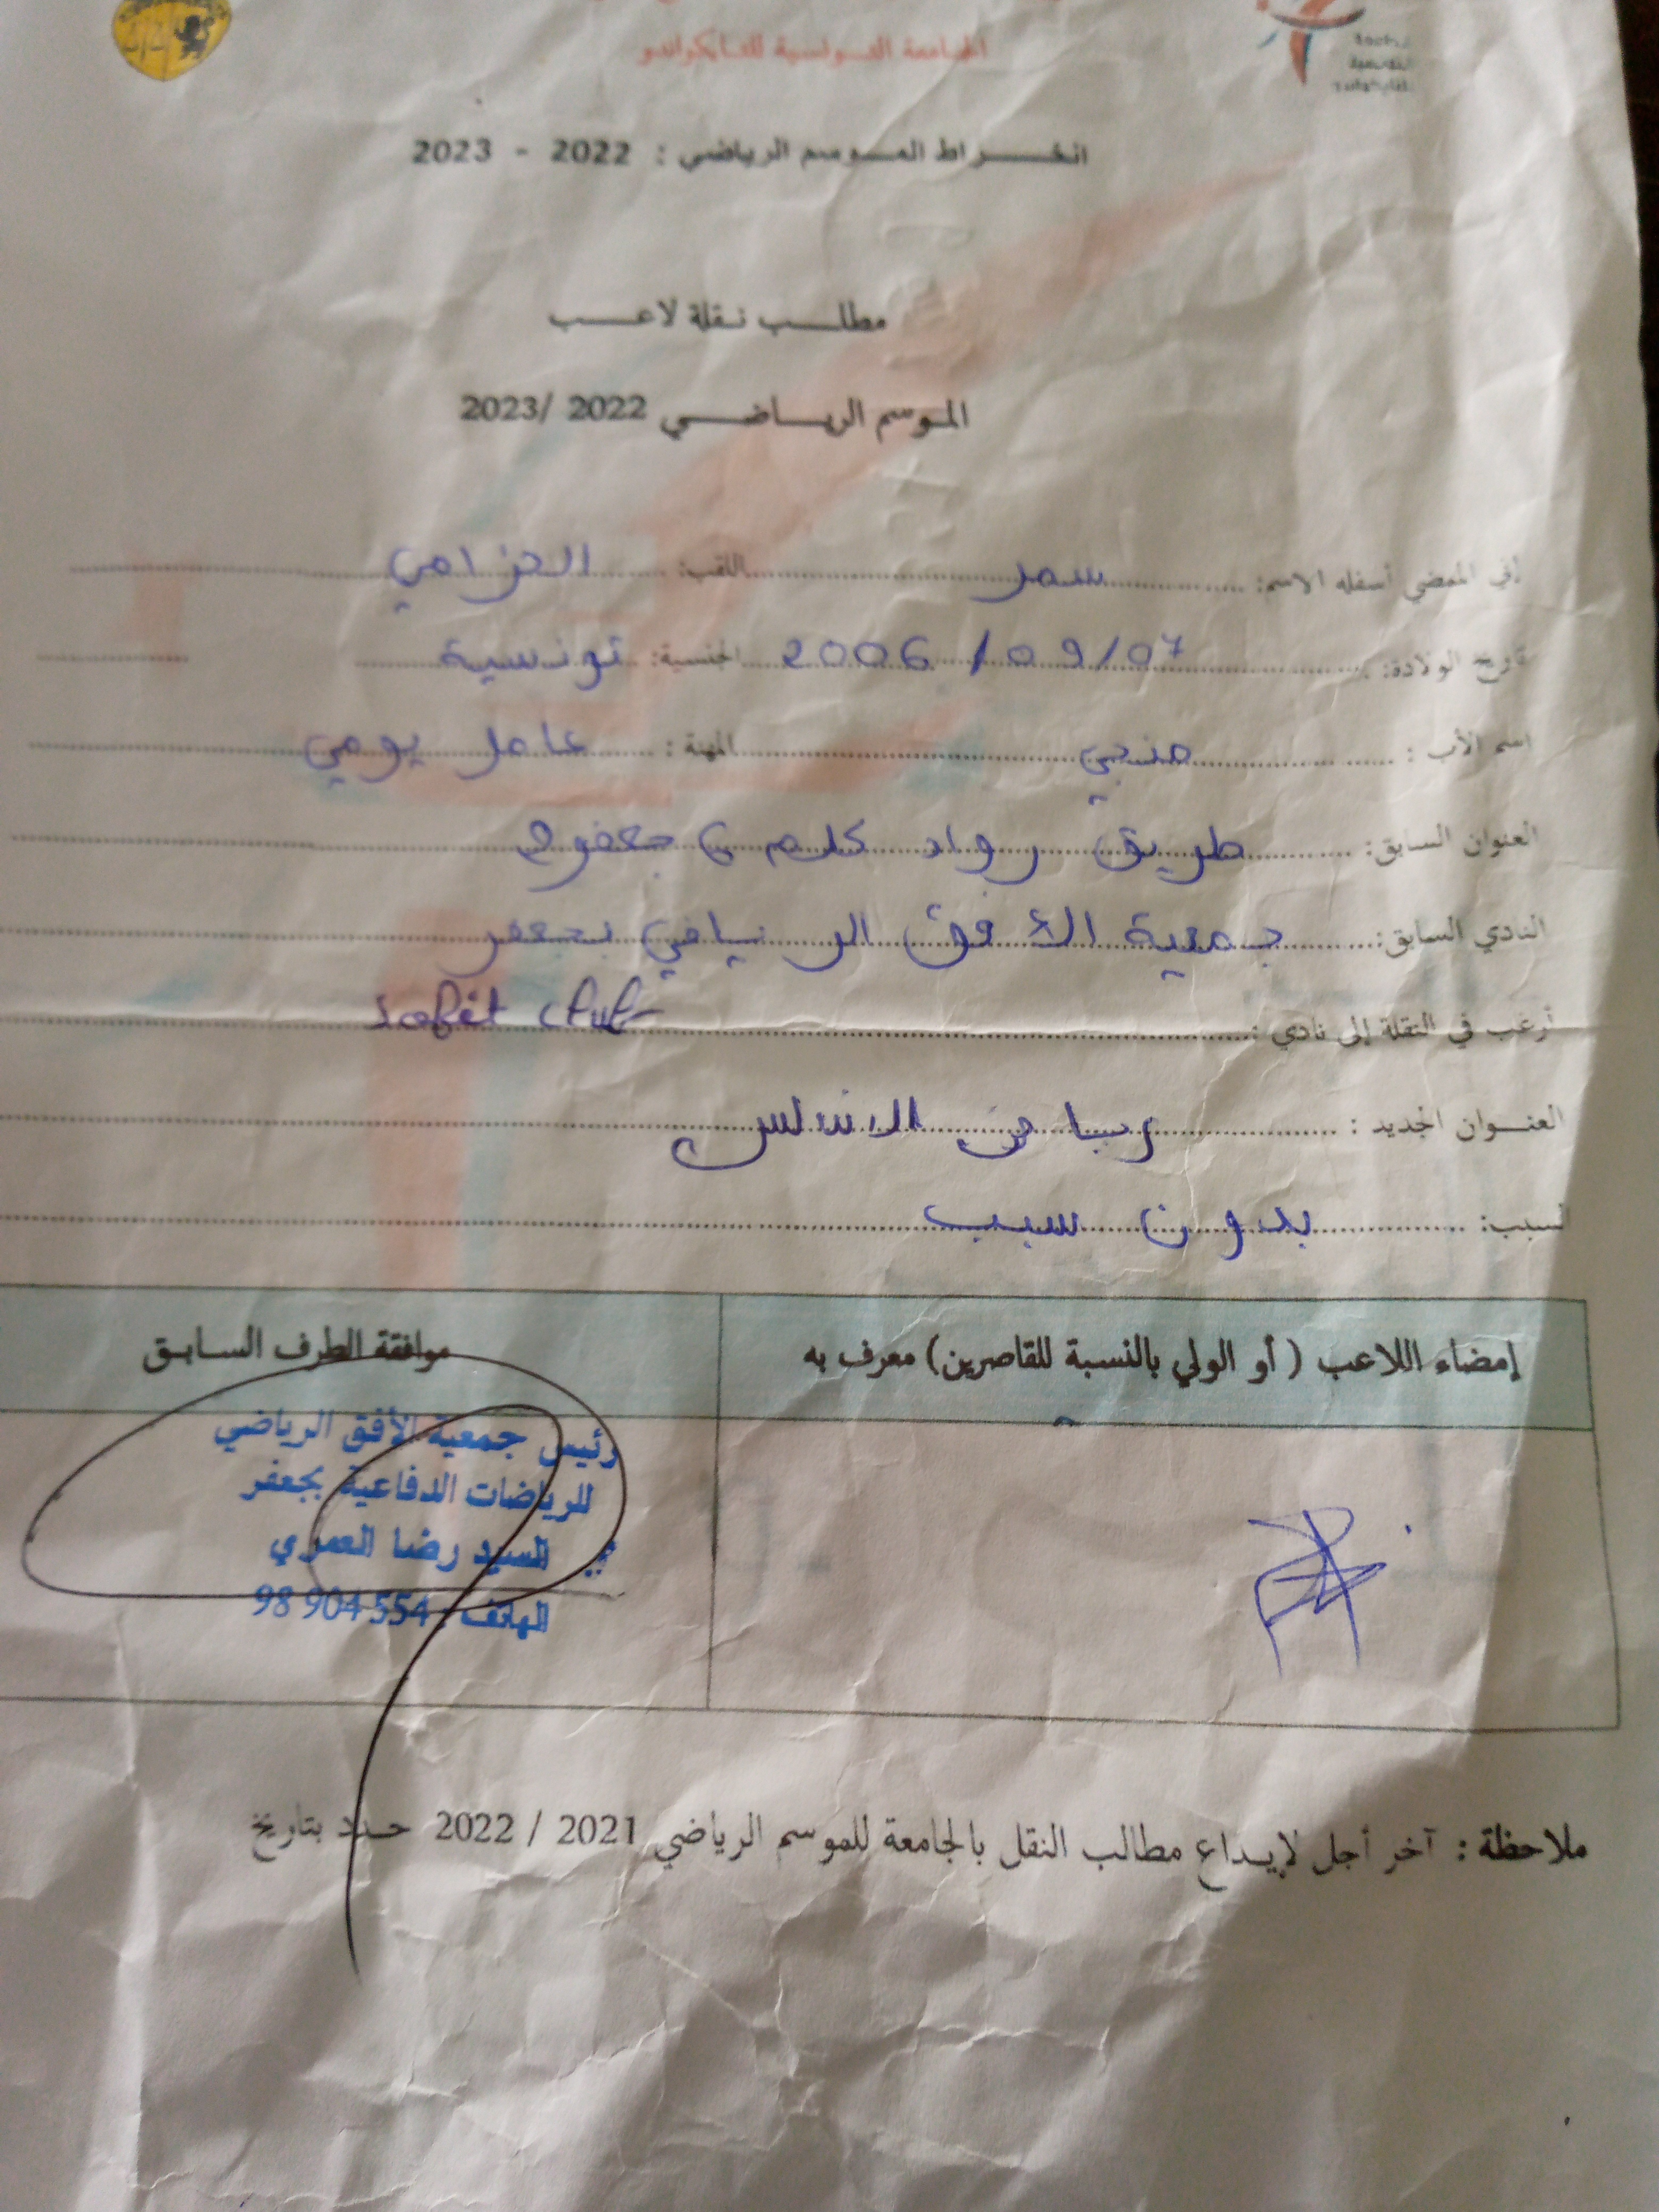 الجامعة التونسية للتايكواندو
انخراط الموسم الرياضي : 2022 - 2023
مطلب نقلة لاعب
الموسم الرياضي 2022 /2023
إني الممضي أسفله الاسم: سمر اللقب: الحزامي
تاريخ الولادة: 07/09/2006 الجنسية: تونسية
اسم الأب : منجي المهنة : عامل يومي
العنوان السابق: طريق رواد كلم 6 جعفر
النادي السابق: جمعية الأفق الرياضي بجعفر
أرغب في النقلة إلى نادي :
العنوان الجديد : رياض الاندلس
لسبب: بدون سبب
إمضاء اللاعب ( أو الولي بالنسبة للقاصرين) معرف به
موافقة الطرف السابق
رئيس جمعية الأفق الرياضي
للرياضات الدفاعية بجعفر
السيد رضا العمري
الهاتف : 98 904 554
ملاحظة : آخر أجل لإيداع مطالب النقل بالجامعة للموسم الرياضي 2021 / 2022 حدد بتاريخ